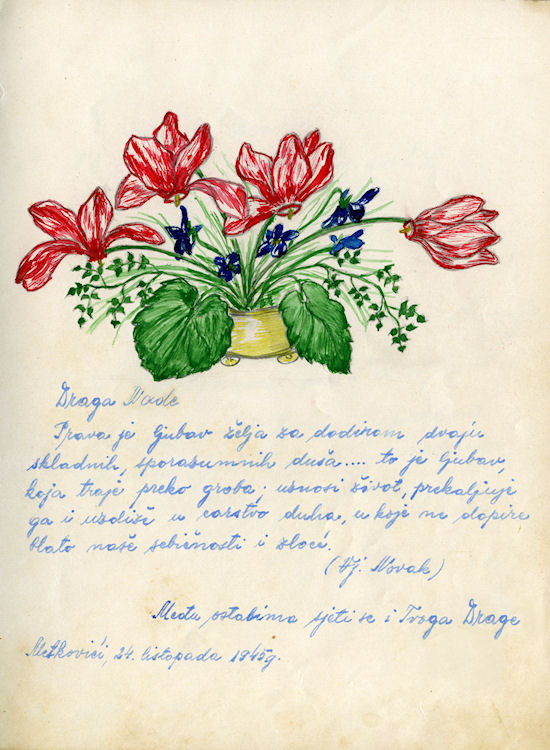 Draga Nade
Prava je ljubav želja za dodirom dvaju
skladnih, sporazumnih duša.... to je ljubav,
koja traje preko groba; uznosi život, prekaljuje
ga i uzdiše u carstvo duha, u koje ne dopire
blato naše sebičnosti i zloće.
(Vj. Novak)
Među ostalima sjeti se i Tvoga Drage
Metkovići, 24. listopada 1945g.